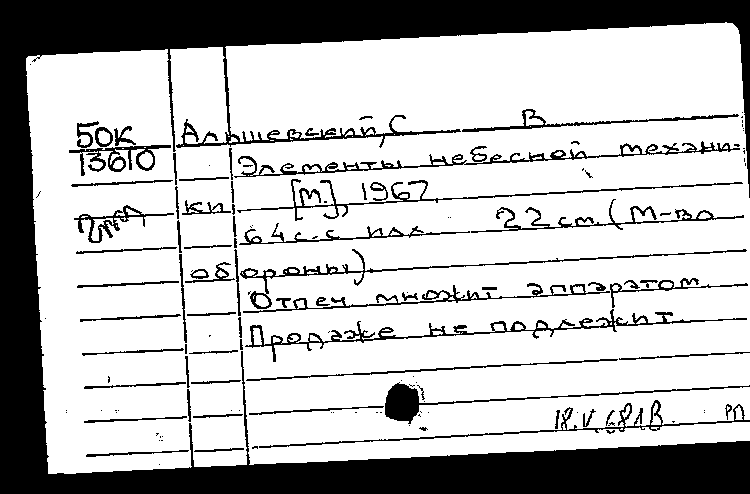 50к Альшевский, С В
13610 Элементы небесной механи-
ки [М.], 1967.
64 с. с илл 22 см. (М-во
обороны).
Отпеч множит. аппаратом.
Продаже не подлежит.
18.V.68 РП